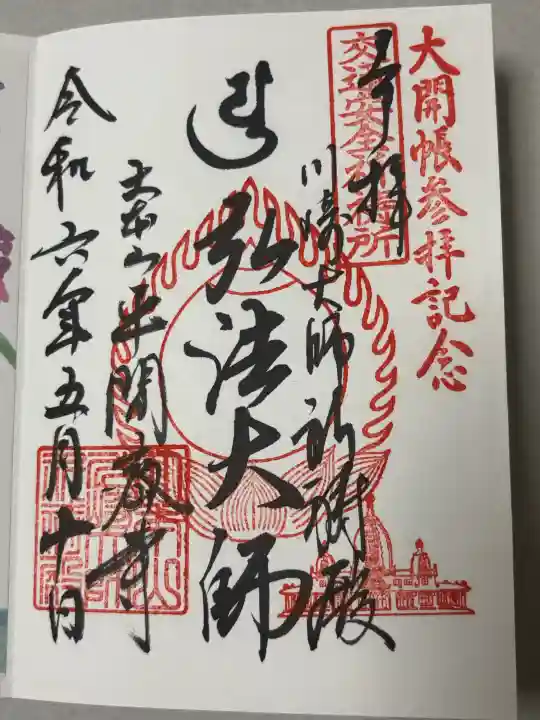 大開帳参拝記念
交通安全祈祷所
奉拝
川崎大師祈祷殿
弘法大師
大本山平間教寺
令和六年五月十日